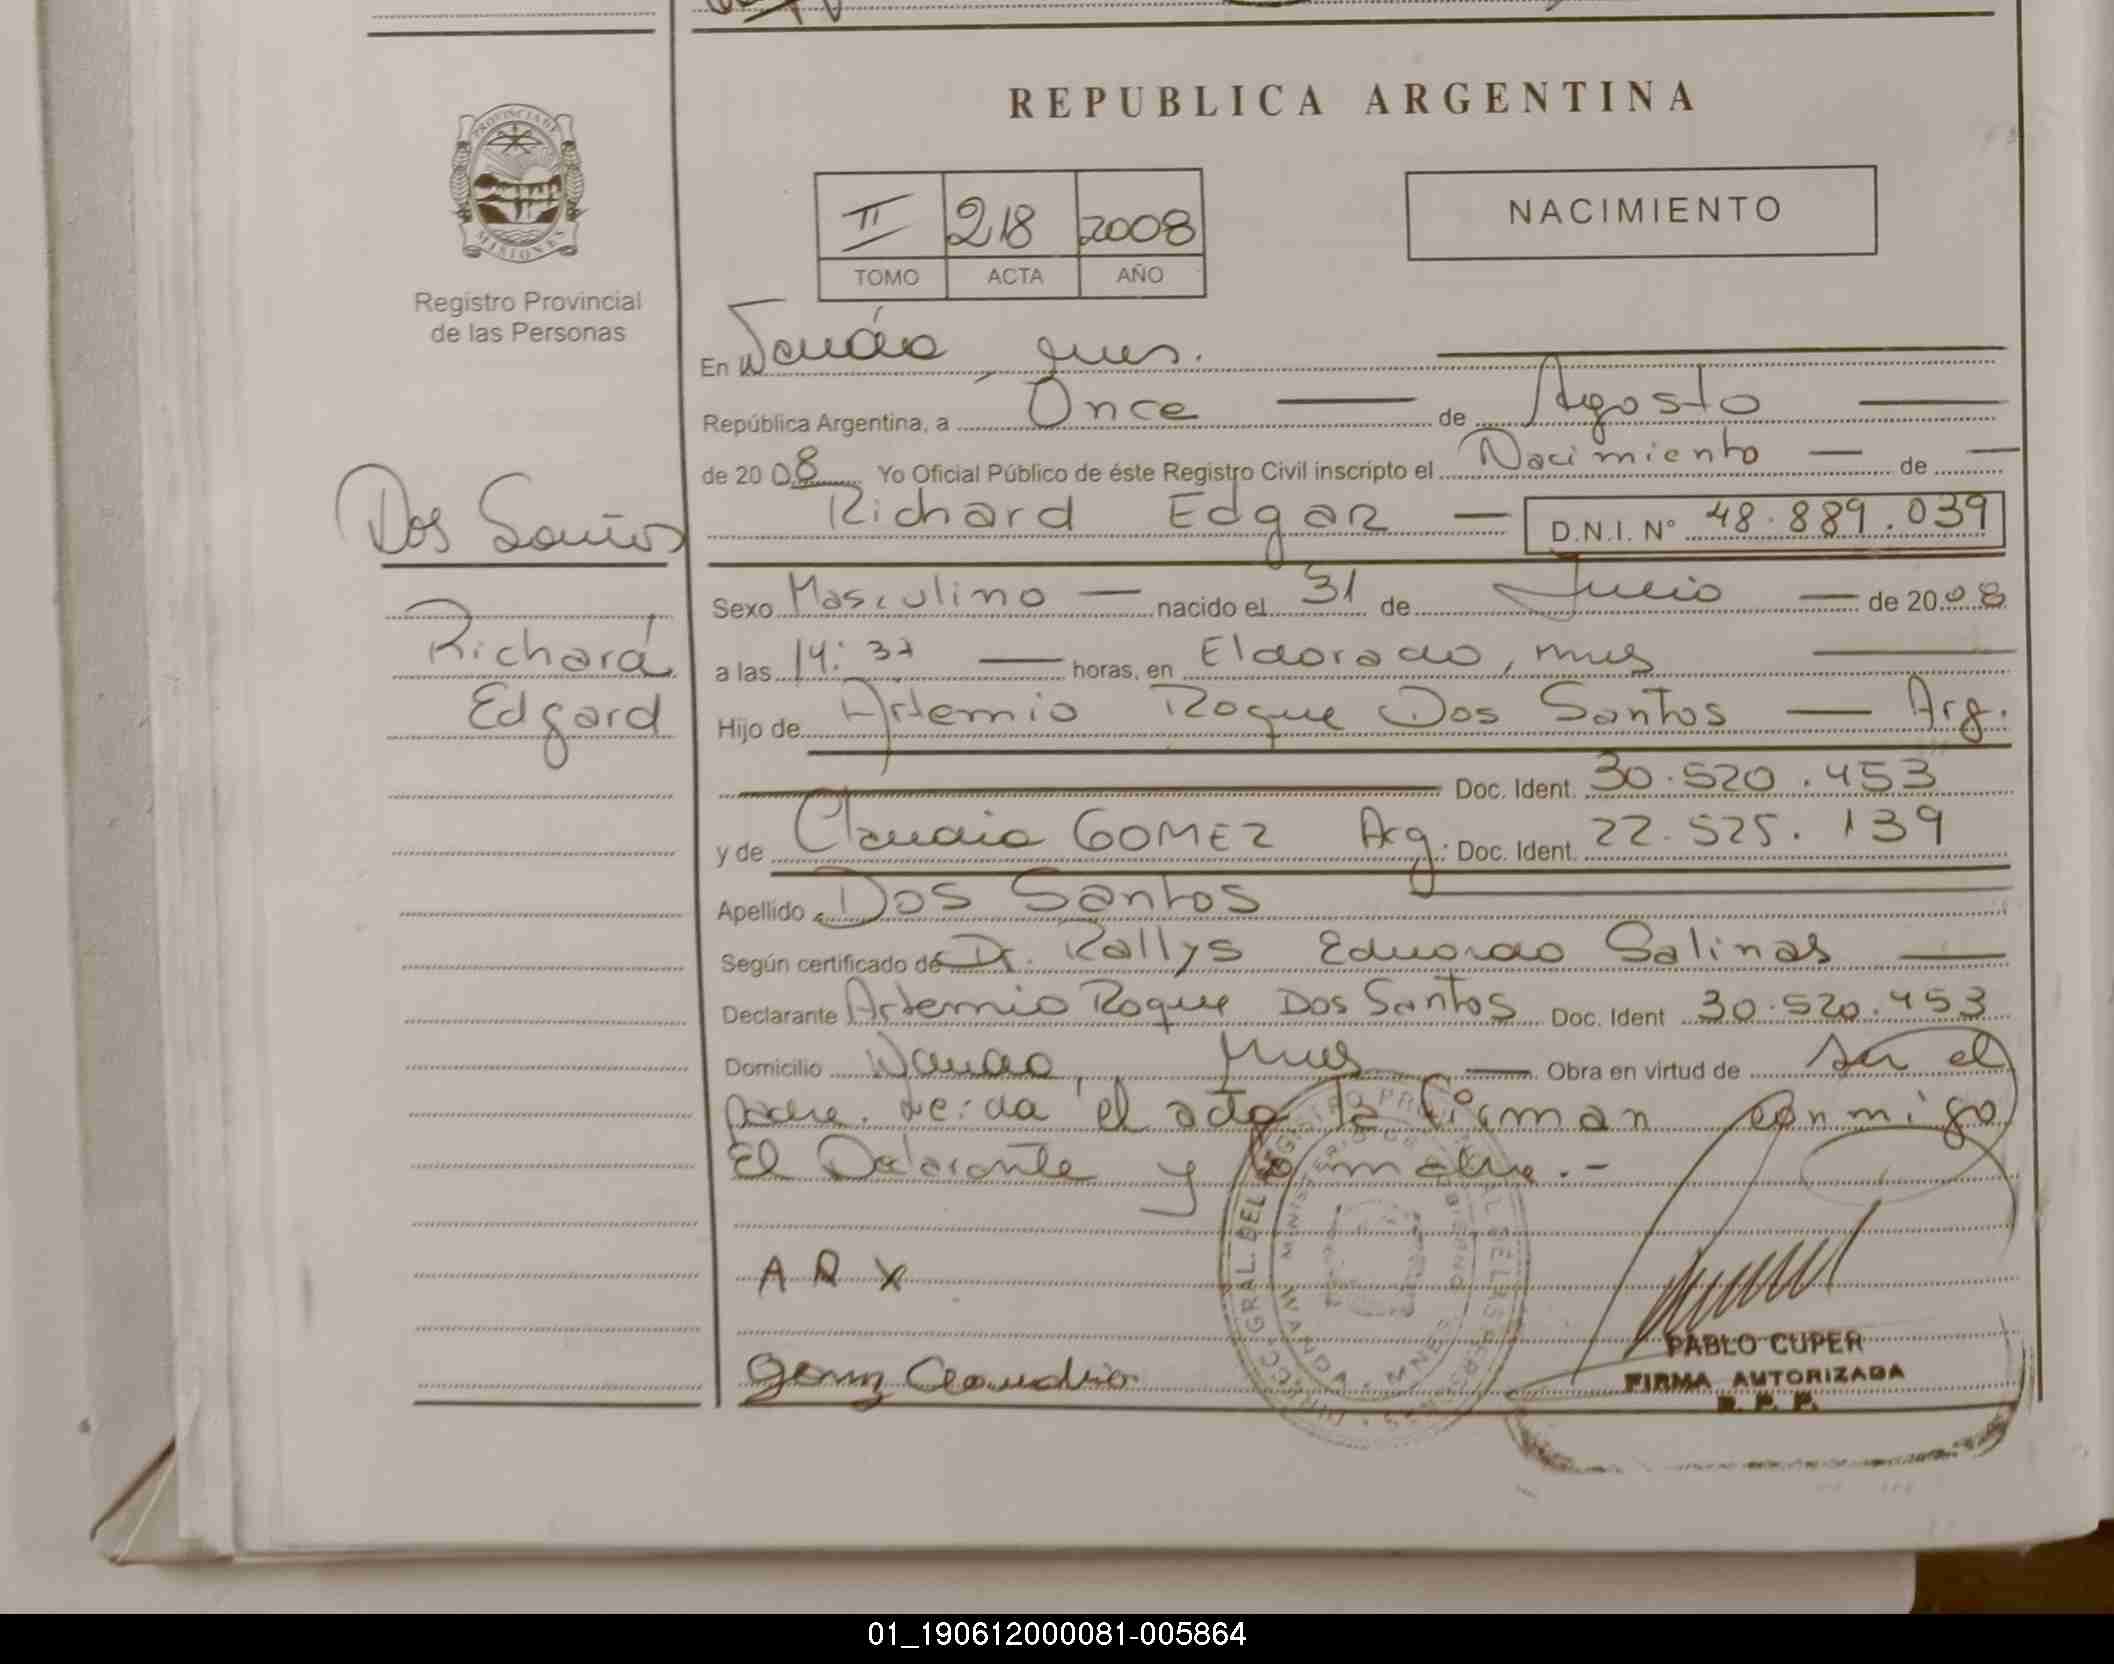 REPUBLICA ARGENTINA
PROVINCIA DE
MISIONES
Registro Provincial
de las Personas
II 218 2008
TOMO ACTA AÑO
NACIMIENTO
En Wanda, Mnes.
República Argentina, a Once de Agosto
de 2008 Yo Oficial Público de éste Registro Civil inscripto el Nacimiento de
Richard Edgar D.N.I. Nº 48.889.039
Dos Santos
Richard
Edgard
Sexo Masculino nacido el 31 de Julio de 2008
a las 14:37 horas, en Eldorado, Mnes
Hijo de Artemio Roque Dos Santos Arg.
Doc. Ident. 30.520.453
y de Claudia GOMEZ Arg. Doc. Ident. 22.525.139
Apellido Dos Santos
Según certificado de Dr. Rallys Eduardo Salinas
Declarante Artemio Roque Dos Santos Doc. Ident 30.520.453
Domicilio Wanda, Mnes Obra en virtud de ser el
padre. Leida el acta la firman conmigo
El Declarante y la madre.-
A R X
Gomez Claudia
DIRECC. GRAL. DEL REGISTRO PROVINCIAL DE LAS PERSONAS
MINISTERIO DE GOBIERNO
WANDA - MNES
PABLO CUPER
FIRMA AUTORIZADA
R. P. P.
01_190612000081-005864